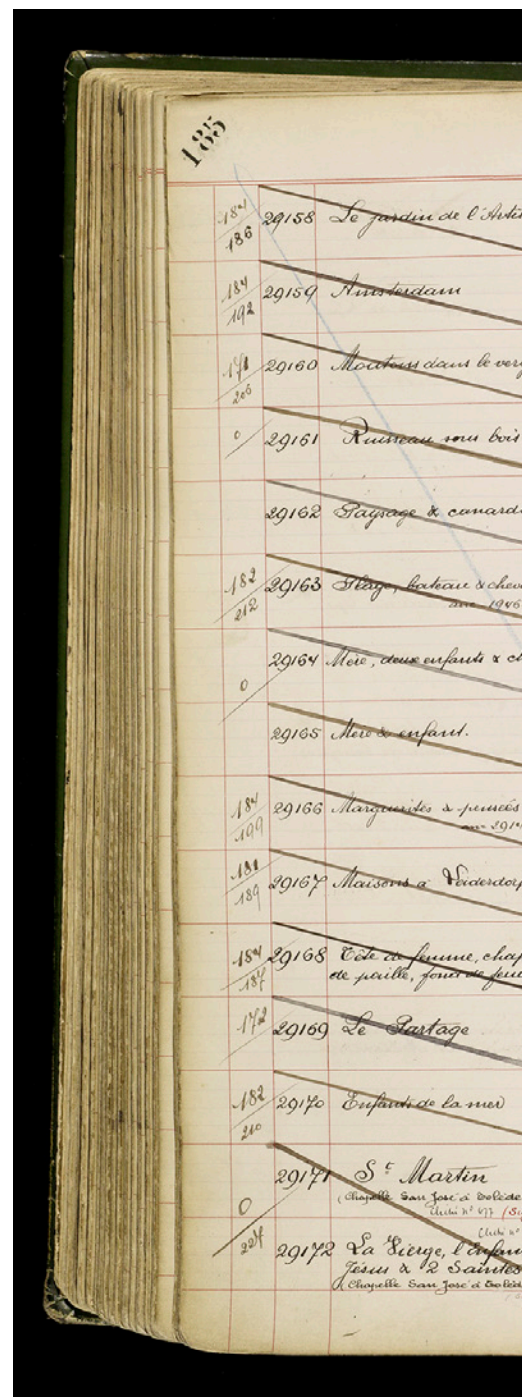 185
184
186 29158 Le jardin de l'Artis
184
192 29159 Amsterdam
171
206 29160 Moutons dans le verg
0 29161 Ruisseau sous bois
29162 Paysage & canards
182
212 29163 Plage, bateau & chev
anc 1946
0 29164 Mère, deux enfants & ch
29165 Mère & enfant.
184
199 29166 Marguerites & pensées
anc 2914
181
189 29167 Maisons à Leiderdorp
184
187 29168 Tête de femme, chap
de paille, fond de feu
172 29169 Le Partage
182
210 29170 Enfants de la mer
29171 St Martin
(Chapelle San José à Tolède
Cliché n° 477 (Su
0
227 Cliché n°
29172 La Vierge, l'Enfan
Jésus & 2 Saintes
(Chapelle San José à Tolèd